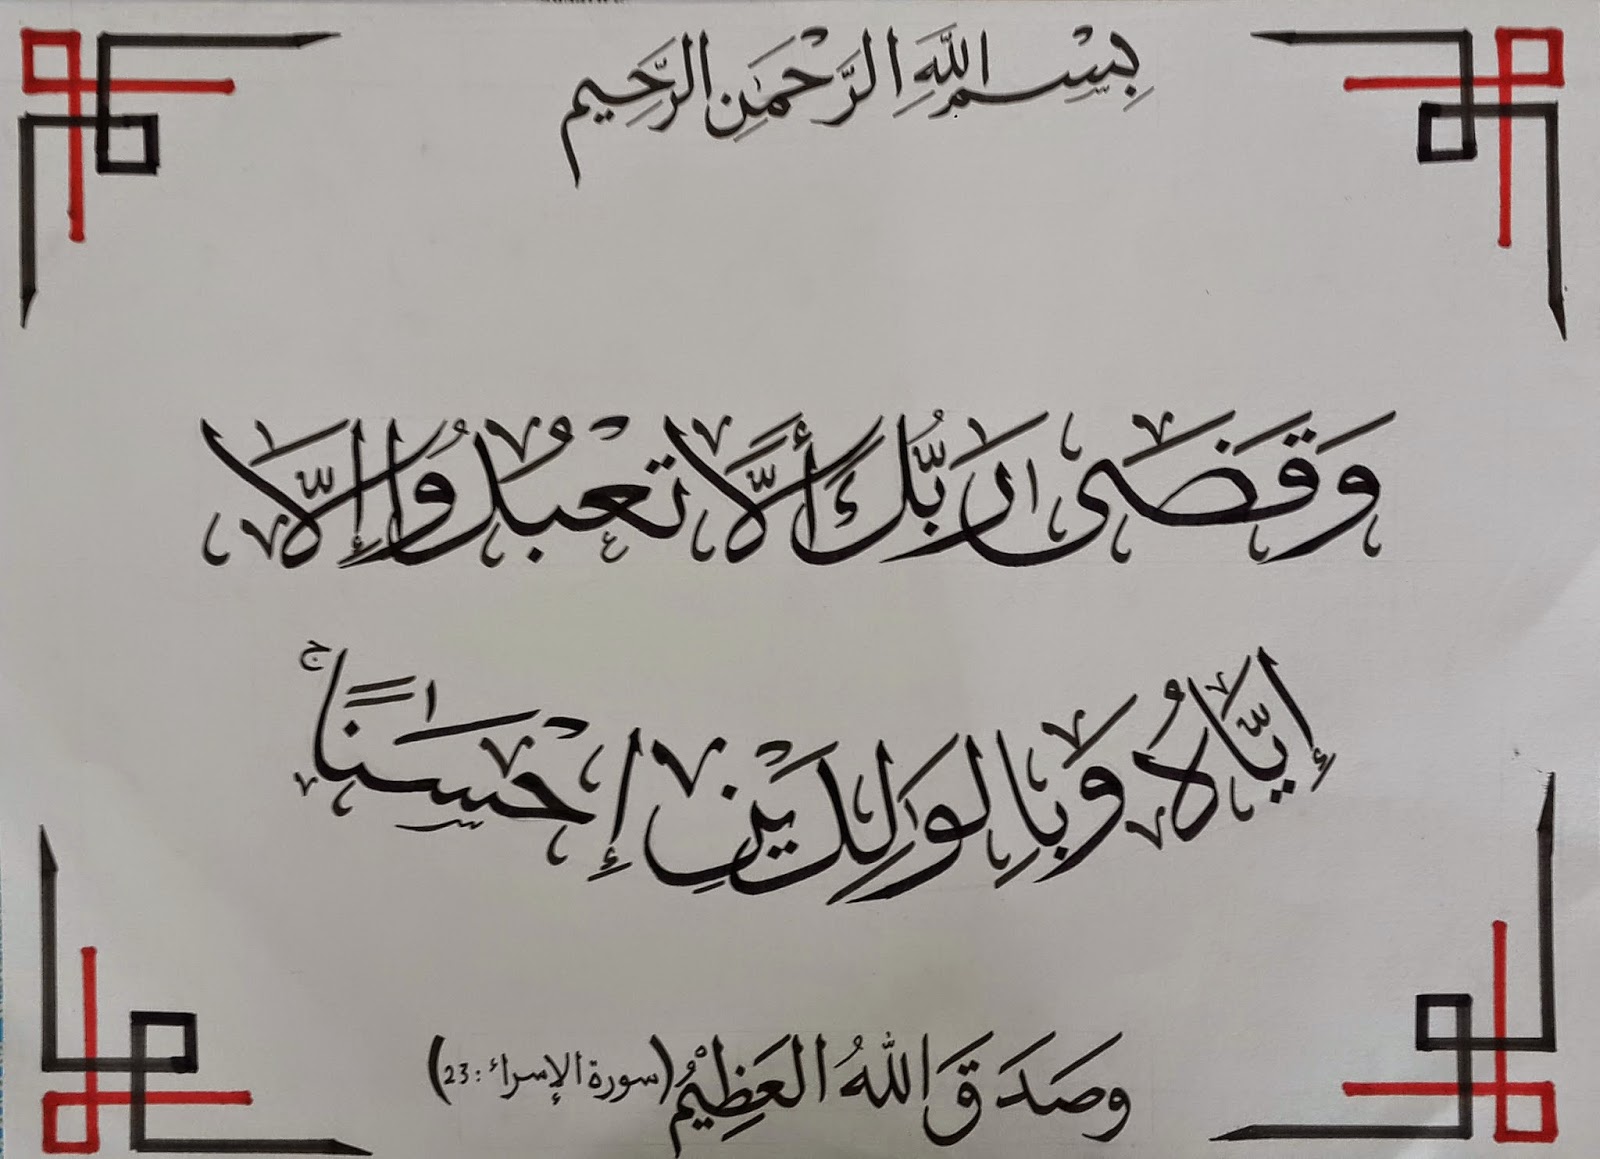 بِسْمِ اللَّهِ الرَّحْمَٰنِ الرَّحِيمِ
وَقَضَىٰ رَبُّكَ أَلَّا تَعْبُدُوا إِلَّا
إِيَّاهُ وَبِالْوَالِدَيْنِ إِحْسَانًا ۚ
وصَدَقَ اللهُ العَظِيْمُ (سورة الإسراء : 23)